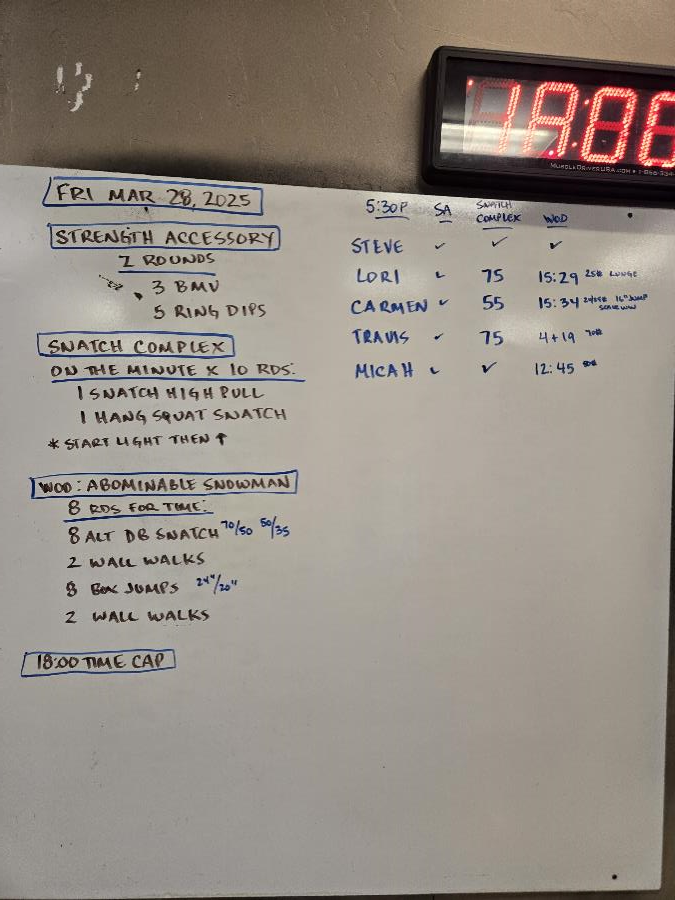 MUSCLEDRIVERUSA.COM • 1-866-
FRI MAR 28, 2025
STRENGTH ACCESSORY
2 ROUNDS
3 BMU
5 RING DIPS
SNATCH COMPLEX
ON THE MINUTE X 10 RDS:
1 SNATCH HIGH PULL
1 HANG SQUAT SNATCH
* START LIGHT THEN ↑
WOD: ABOMINABLE SNOWMAN
8 RDS FOR TIME:
8 ALT DB SNATCH 70/50 50/35
2 WALL WALKS
8 BOX JUMPS 24"/20"
2 WALL WALKS
18:00 TIME CAP
5:30P SA SNATCH COMPLEX WOD
STEVE ✓ ✓ ✓
LORI ✓ 75 15:29 25# LUNGE
CARMEN ✓ 55 15:34 16" JUMP
TRAVIS ✓ 75 4+19 70#
MICAH ✓ ✓ 12:45 50#